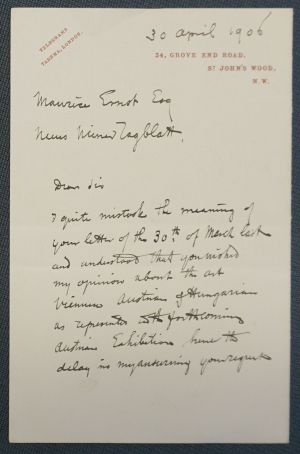 30 April 1906
TELEGRAMS
TADEMA, LONDON.
34, GROVE END ROAD,
ST JOHN'S WOOD,
N.W.
Maurice Ernst Esq
Neues Wiener Tagblatt.
Dear Sir
I quite mistook the meaning of
your letter of the 30th of March last
and understood that you wished
my opinion about the art
Viennese Austrian & Hungarian
as represented forthcoming
Austrian Exhibition hence the
delay in my answering your request